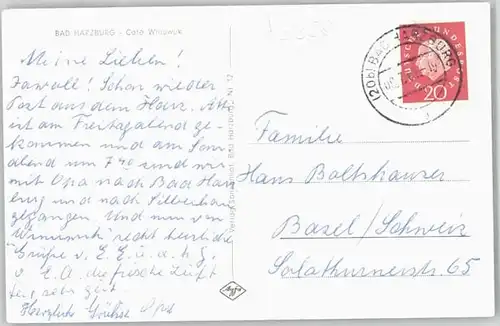 BAD HARZBURG - Café Winuwuk
Meine Lieben!
Jawoll! Schon wieder
Post aus dem Harz.
ist am Freitagabend ge-
kommen und am Sonn
abend um 7 40 sind wir
mit Opa nach Bad Harz
burg und nach Silberhan
gegangen. Und nun von
"Winuwuk" recht herzliche
Grüße v. E. E. u. a. h. z.
v. E. A. die frische Luft
sehr gut
Herzliche Grüsse Opa
Bad Harzburg, Nr. 12
Agfa
(20b) BAD HARZBURG
DEUTSCHE BUNDESPOST
20
Familie
Hans Boltshauser
Basel/Schweiz
Solothurnerstr. 65